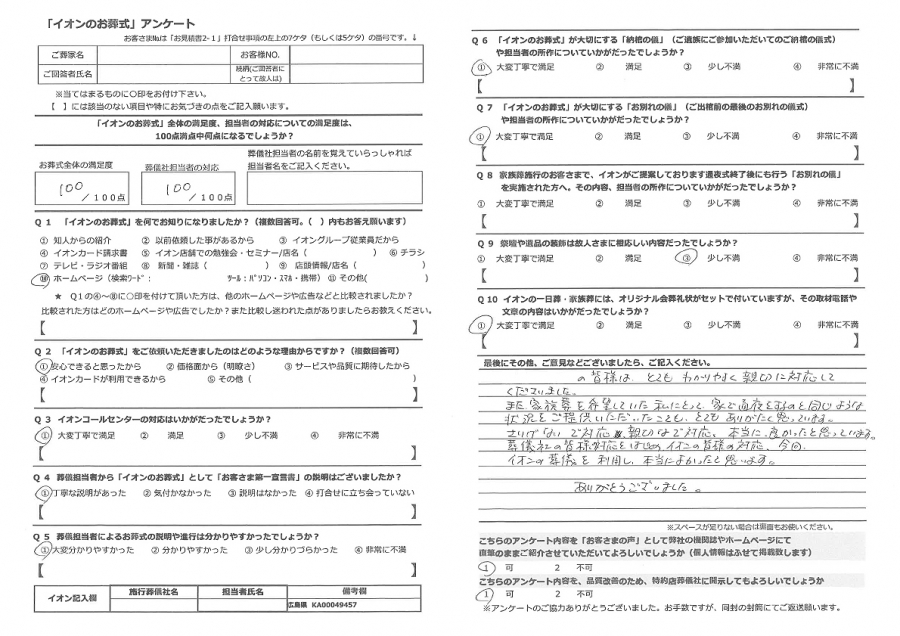 「イオンのお葬式」アンケート
お客さま№は「お見積書2-1」打合せ事項の左上の7ケタ（もしくは5ケタ）の番号です。↓
ご葬家名 お客様NO.
ご回答者氏名 続柄(ご回答者にとって故人は)
※当てはまるものに〇印をお付け下さい。
【 】には該当のない項目や特にお気づきの点をご記入願います。
「イオンのお葬式」全体の満足度、担当者の対応についての満足度は、
100点満点中何点になるでしょうか？
お葬式全体の満足度 葬儀社担当者の対応 葬儀社担当者の名前を覚えていらっしゃれば
担当者名をご記入ください。
100 ／100点 100 ／100点
Q１ 「イオンのお葬式」を何でお知りになりましたか？（複数回答可。( ）内もお答え願います）
① 知人からの紹介 ② 以前依頼した事があるから ③ イオングループ従業員だから
④ イオンカード請求書 ⑤ イオン店舗での勉強会・セミナー/店名（ ） ⑥ チラシ
⑦ テレビ・ラジオ番組 ⑧ 新聞・雑誌（ ） ⑨ 店頭情報/店名（ ）
⑩ ホームページ（検索ワード： ツール：パソコン・スマホ・携帯） ⑪ その他( )
★ Q1の④～⑧に〇印を付けて頂いた方は、他のホームページや広告などと比較されましたか？
比較された方はどのホームページや広告でしたか？また比較し迷われた点がありましたらお教えください。
【 】
Q２ 「イオンのお葬式」をご依頼いただきましたのはどのような理由からですか？（複数回答可）
① 安心できると思ったから ② 価格面から（明瞭さ） ③ サービスや品質に期待したから
④ イオンカードが利用できるから ⑤ その他（ ）
【 】
Q３ イオンコールセンターの対応はいかがだったでしょうか？
① 大変丁寧で満足 ② 満足 ③ 少し不満 ④ 非常に不満
【 】
Q４ 葬儀担当者から「イオンのお葬式」として「お客さま第一宣言書」の説明はございましたか？
① 丁寧な説明があった ② 気付かなかった ③ 説明はなかった ④ 打合せに立ち会っていない
【 】
Q５ 葬儀担当者によるお葬式の説明や進行は分かりやすかったでしょうか？
① 大変分かりやすかった ② 分かりやすかった ③ 少し分りづらかった ④ 非常に不満
【 】
イオン記入欄 施行葬儀社名 担当者氏名 備考欄
広島県 KA00049457
Q６ 「イオンのお葬式」が大切にする「納棺の儀」（ご遺族にご参加いただいてのご納棺の儀式）
や担当者の所作についていかがだったでしょうか？
① 大変丁寧で満足 ② 満足 ③ 少し不満 ④ 非常に不満
【 】
Q７ 「イオンのお葬式」が大切にする「お別れの儀」（ご出棺前の最後のお別れの儀式）
や担当者の所作についていかがだったでしょうか？
① 大変丁寧で満足 ② 満足 ③ 少し不満 ④ 非常に不満
【 】
Q８ 家族葬施行のお客さまで、イオンがご提案しております通夜式終了後にも行う「お別れの儀」
を実施された方へ。その内容、担当者の所作についていかがだったでしょうか？
① 大変丁寧で満足 ② 満足 ③ 少し不満 ④ 非常に不満
【 】
Q９ 祭壇や遺品の装飾は故人さまに相応しい内容だったでしょうか？
① 大変丁寧で満足 ② 満足 ③ 少し不満 ④ 非常に不満
【 】
Q10 イオンの一日葬・家族葬には、オリジナル会葬礼状がセットで付いていますが、その取材電話や
文章の内容はいかがだったでしょうか？
① 大変丁寧で満足 ② 満足 ③ 少し不満 ④ 非常に不満
【 】
最後にその他、ご意見などございましたら、ご記入ください。
の皆様は、とても わかりやすく 親切に対応して
くださいました。
また 家族葬を希望していた 私にとって、家で通夜をするのと同じような
状況をご提供いただいたことも、とてもありがたく思っています。
さりげない ご対応、親切なご対応、本当に良かったと思っています。
葬儀社の皆様の対応をはじめ、イオンの皆様の対応、今回
イオンの葬儀を利用し、本当によかったと思います。
ありがとうございました。
※スペースが足りない場合は裏面もお使いください。
こちらのアンケート内容を「お客さまの声」として弊社の機関誌やホームページにて
直筆のままご紹介させていただいてよろしいでしょうか（個人情報はふせて掲載致します）
1 可 2 不可
こちらのアンケート内容を、品質改善のため、特約店葬儀社に開示してもよろしいでしょうか
1 可 2 不可
※アンケートのご協力ありがとうございました。お手数ですが、同封の封筒にてご返送願います。